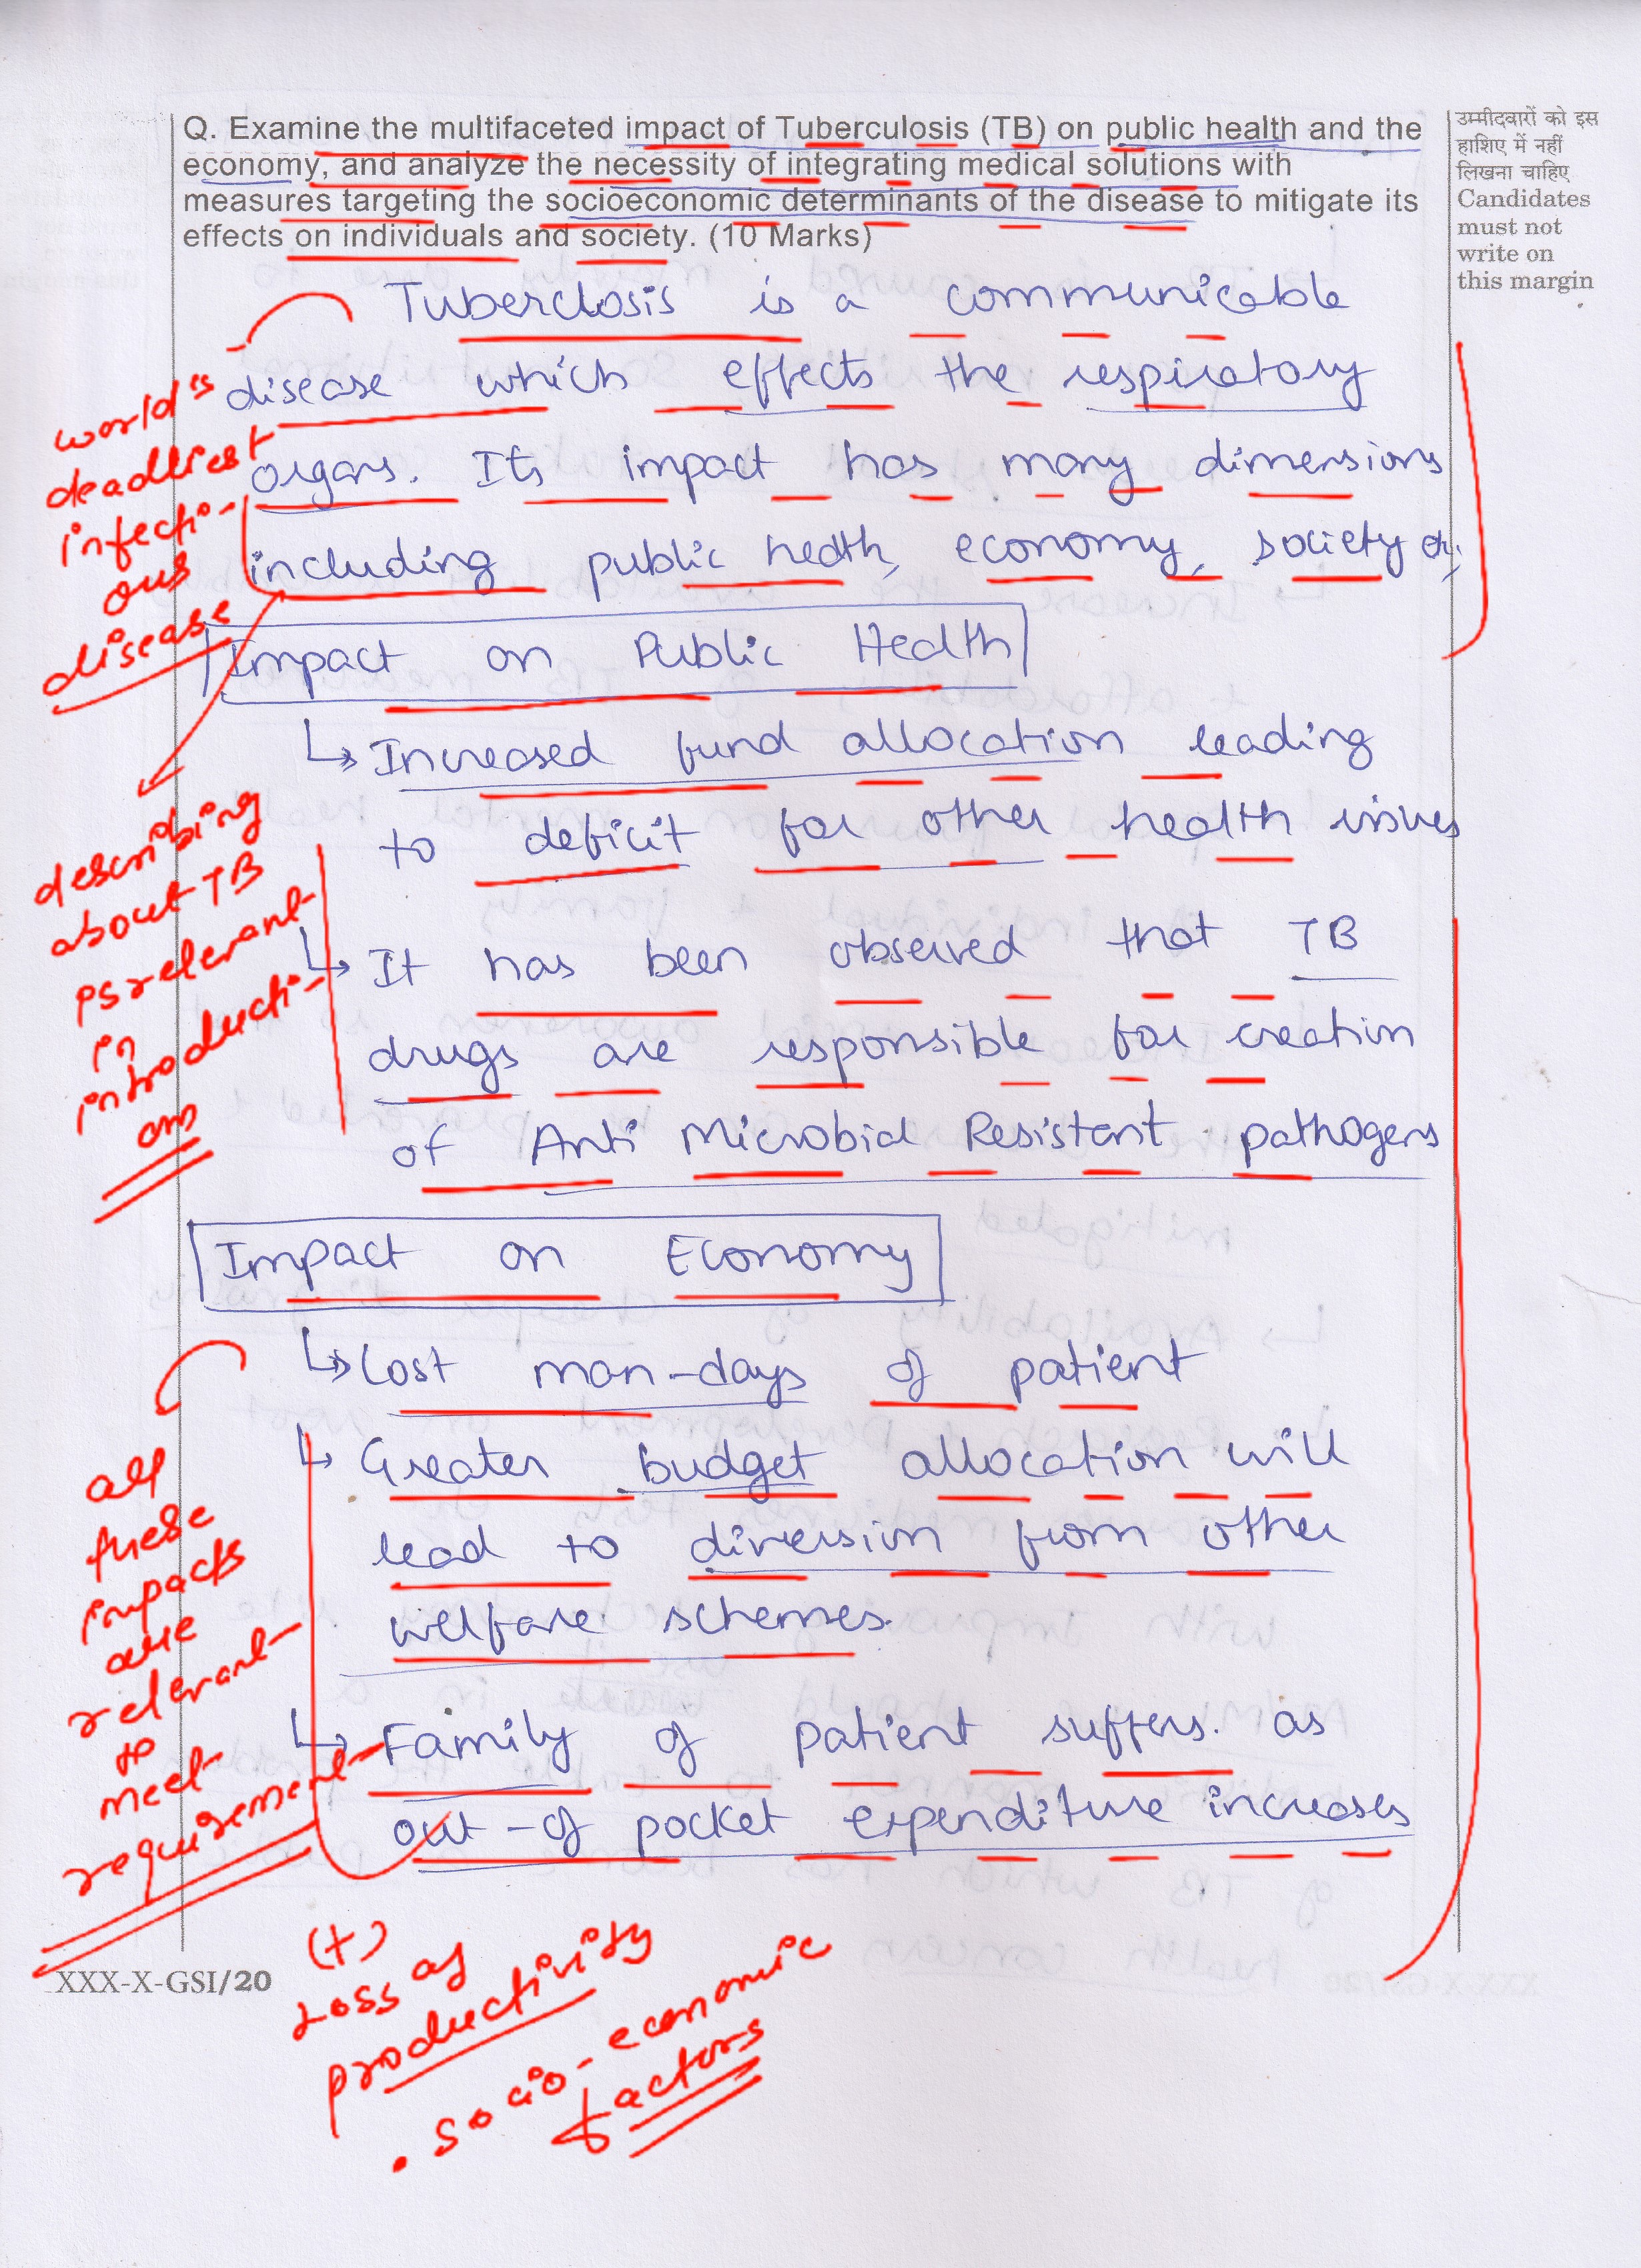 Q. Examine the multifaceted impact of Tuberculosis (TB) on public health and the
economy, and analyze the necessity of integrating medical solutions with
measures targeting the socioeconomic determinants of the disease to mitigate its
effects on individuals and society. (10 Marks)
उम्मीदवारों को इस
हाशिए में नहीं
लिखना चाहिए
Candidates
must not
write on
this margin
Tuberclosis is a communicable
disease which effects the respiratory
organs. Its impact has many dimensions
including public health, economy, society
world's
deadliest
infecti-
ous
disease
Impact on Public Health
↳ Increased fund allocation leading
to deficit for other health issues
↳ It has been observed that TB
drugs are responsible for creation
of Anti Microbial Resistant pathogens
describing
about TB
is relevant
in
introducti-
on
Impact on Economy
↳ Lost man-days of patient
↳ Greater budget allocation will
lead to diversion from other
welfare schemes.
↳ Family of patient suffers. as
out-of pocket expenditure increases
all
these
impacts
are
relevant
to
meet
requirement
(+)
Loss of
productivity
. socio-economic
factors
XXX-X-GSI/20